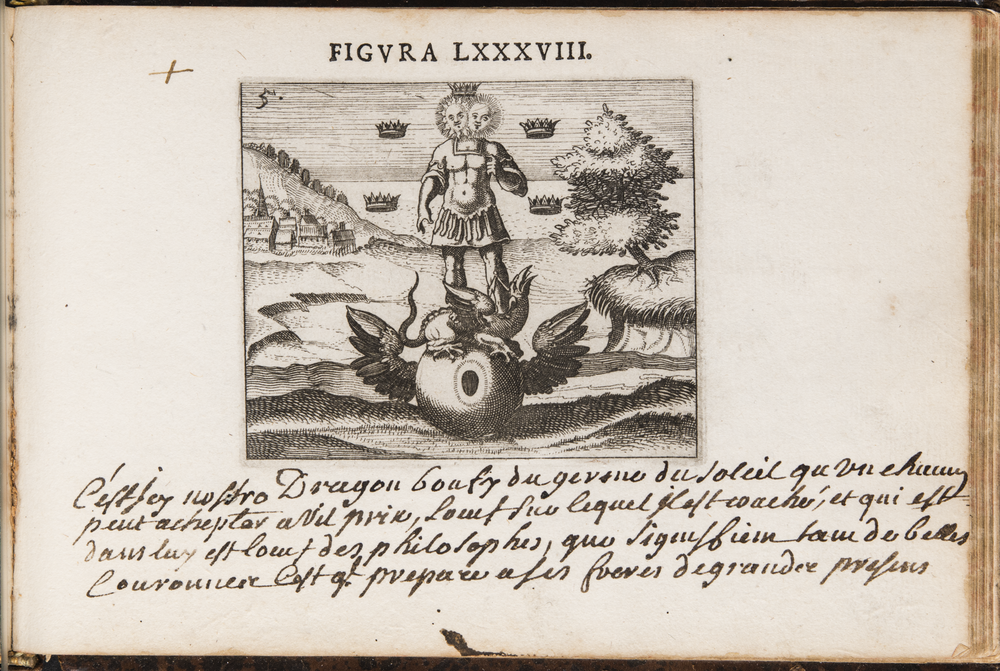 FIGVRA LXXXVIII.
5.
C'est icy nostro Dragon du germe du soleil qu'vn chacun
peut achepter a vil prix, loeuf sur lequel il est couché, et qui est
dans luy est loeuf des philosophes, que signifient tant de belles
Couronnes C'est qt prepare a ses freres de grandes presens